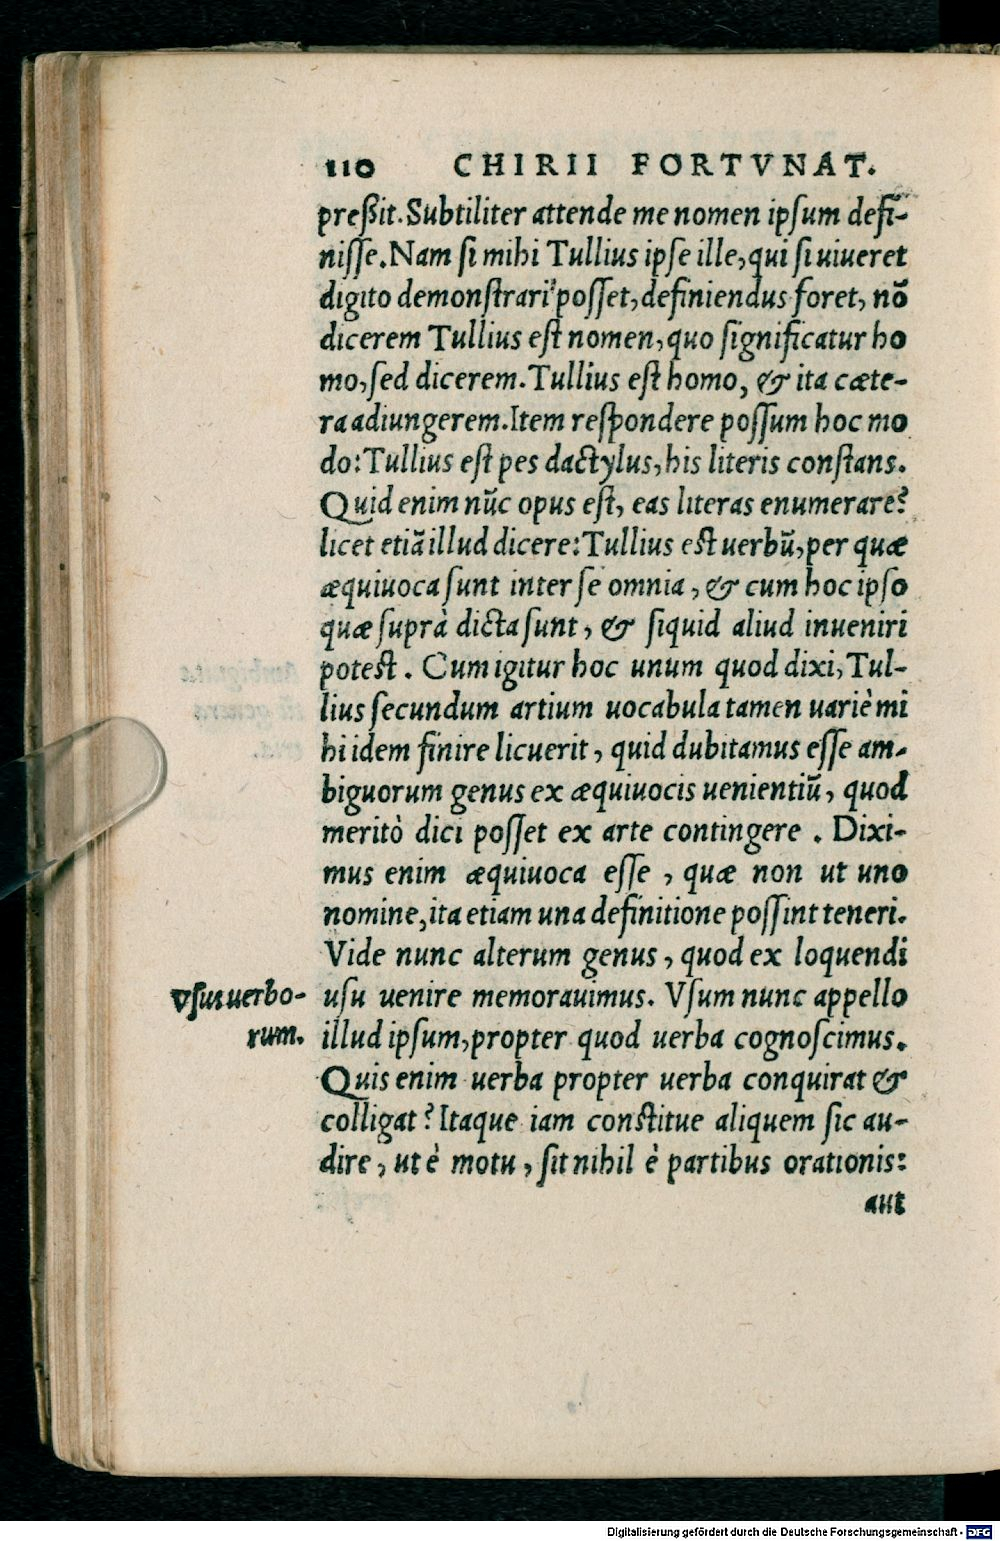 110 CHIRII FORTVNAT.
preßit. Subtiliter attende me nomen ipſum defi-
niſſe. Nam ſi mihi Tullius ipſe ille, qui ſi uiueret
digito demonſtrari poſſet, definiendus foret, nō
dicerem Tullius eſt nomen, quo ſignificatur ho
mo, ſed dicerem. Tullius eſt homo, & ita cæte-
ra adiungerem. Item reſpondere poſſum hoc mo
do: Tullius eſt pes dactylus, his literis conſtans.
Quid enim nūc opus eſt, eas literas enumerare?
licet etiā illud dicere: Tullius eſt uerbū, per quæ
æquiuoca ſunt inter ſe omnia, & cum hoc ipſo
quæ ſuprà dicta ſunt, & ſiquid aliud inueniri
poteſt. Cum igitur hoc unum quod dixi, Tul-
lius ſecundum artium uocabula tamen uariè mi
hi idem finire licuerit, quid dubitamus eſſe am-
biguorum genus ex æquiuocis uenientiū, quod
meritò dici poſſet ex arte contingere. Dixi-
mus enim æquiuoca eſſe, quæ non ut uno
nomine, ita etiam una definitione poſſint teneri.
Vide nunc alterum genus, quod ex loquendi
Vſus uerbo- uſu uenire memorauimus. Vſum nunc appello
rum. illud ipſum, propter quod uerba cognoſcimus.
Quis enim uerba propter uerba conquirat &
colligat? Itaque iam conſtitue aliquem ſic au-
dire, ut è motu, ſit nihil è partibus orationis:
aut
Digitalisierung gefördert durch die Deutsche Forschungsgemeinschaft - DFG